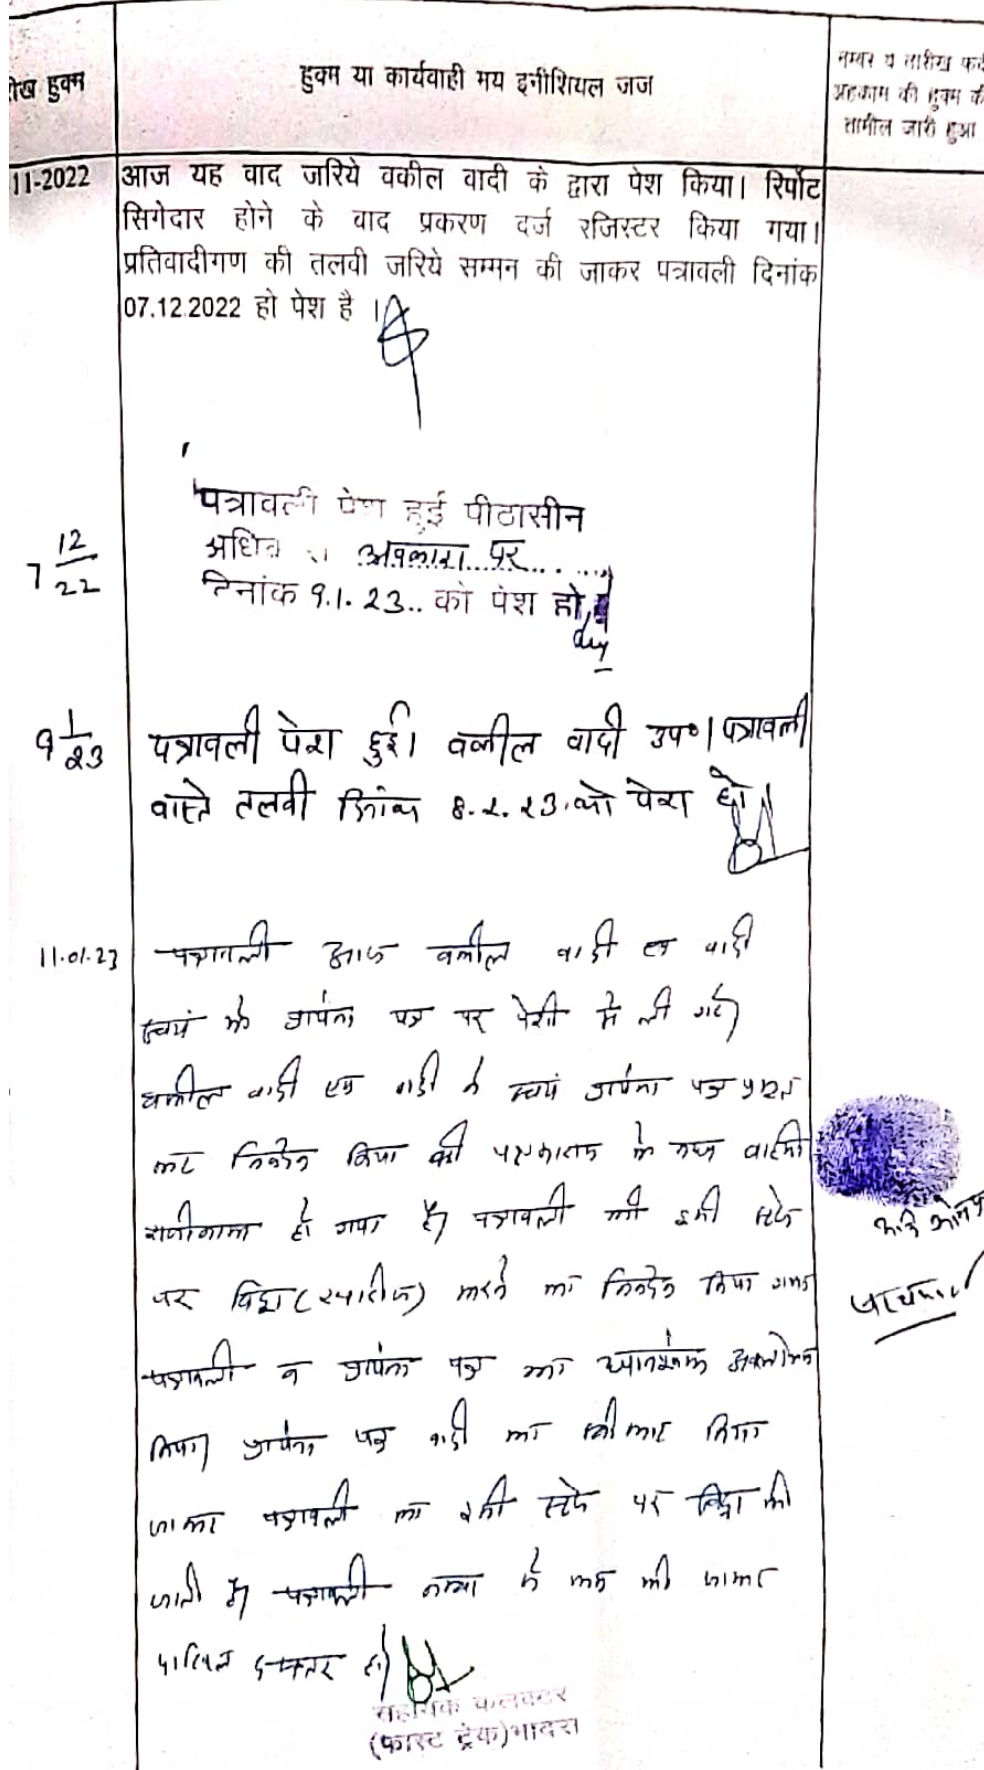 हुक्म या कार्यवाही मय इनीशियल जज
हुक्म
नम्बर व तारीख
अहकाम की हुक्म
तामील जारी हुआ
11-2022 आज यह वाद जरिये वकील वादी के द्वारा पेश किया। रिपोट
सिगेदार होने के वाद प्रकरण दर्ज रजिस्टर किया गया।
प्रतिवादीगण की तलवी जरिये सम्मन की जाकर पत्रावली दिनांक
07.12.2022 हो पेश है ।
पत्रावली पेश हुई पीठासीन
7 12/22 अवकाश पर
दिनांक 9.1.23.. को पेश हो
9 1/23 पत्रावली पेश हुई। वकील वादी उप०। पत्रावली
वास्ते तलवी दिनांक 8.2.23.को पेश हो
11.01.23 पत्रावली आज वकील वादी एवं वादी
स्वयं के प्रार्थना पत्र पर पेशी मे ली गई।
वकील वादी एवं वादी ने स्वयं प्रार्थना पत्र प्रस्तुत
कर निवेदन किया की पक्षकारान के मध्य
राजीनामा हो गया है। पत्रावली को इसी स्टेज
पर विड्रा (खारीज) करने का निवेदन किया गया
पत्रावली व प्रार्थना पत्र का ध्यानपूर्वक अवलोकन
किया। प्रार्थना पत्र वादी का स्वीकार किया
जाकर पत्रावली को इसी स्टेज पर विड्रा की
जाती है। पत्रावली नम्बर से कम की जाकर
दाखिल दफ्तर हो।
सहायक कलक्टर
(फास्ट ट्रेक) भादरा